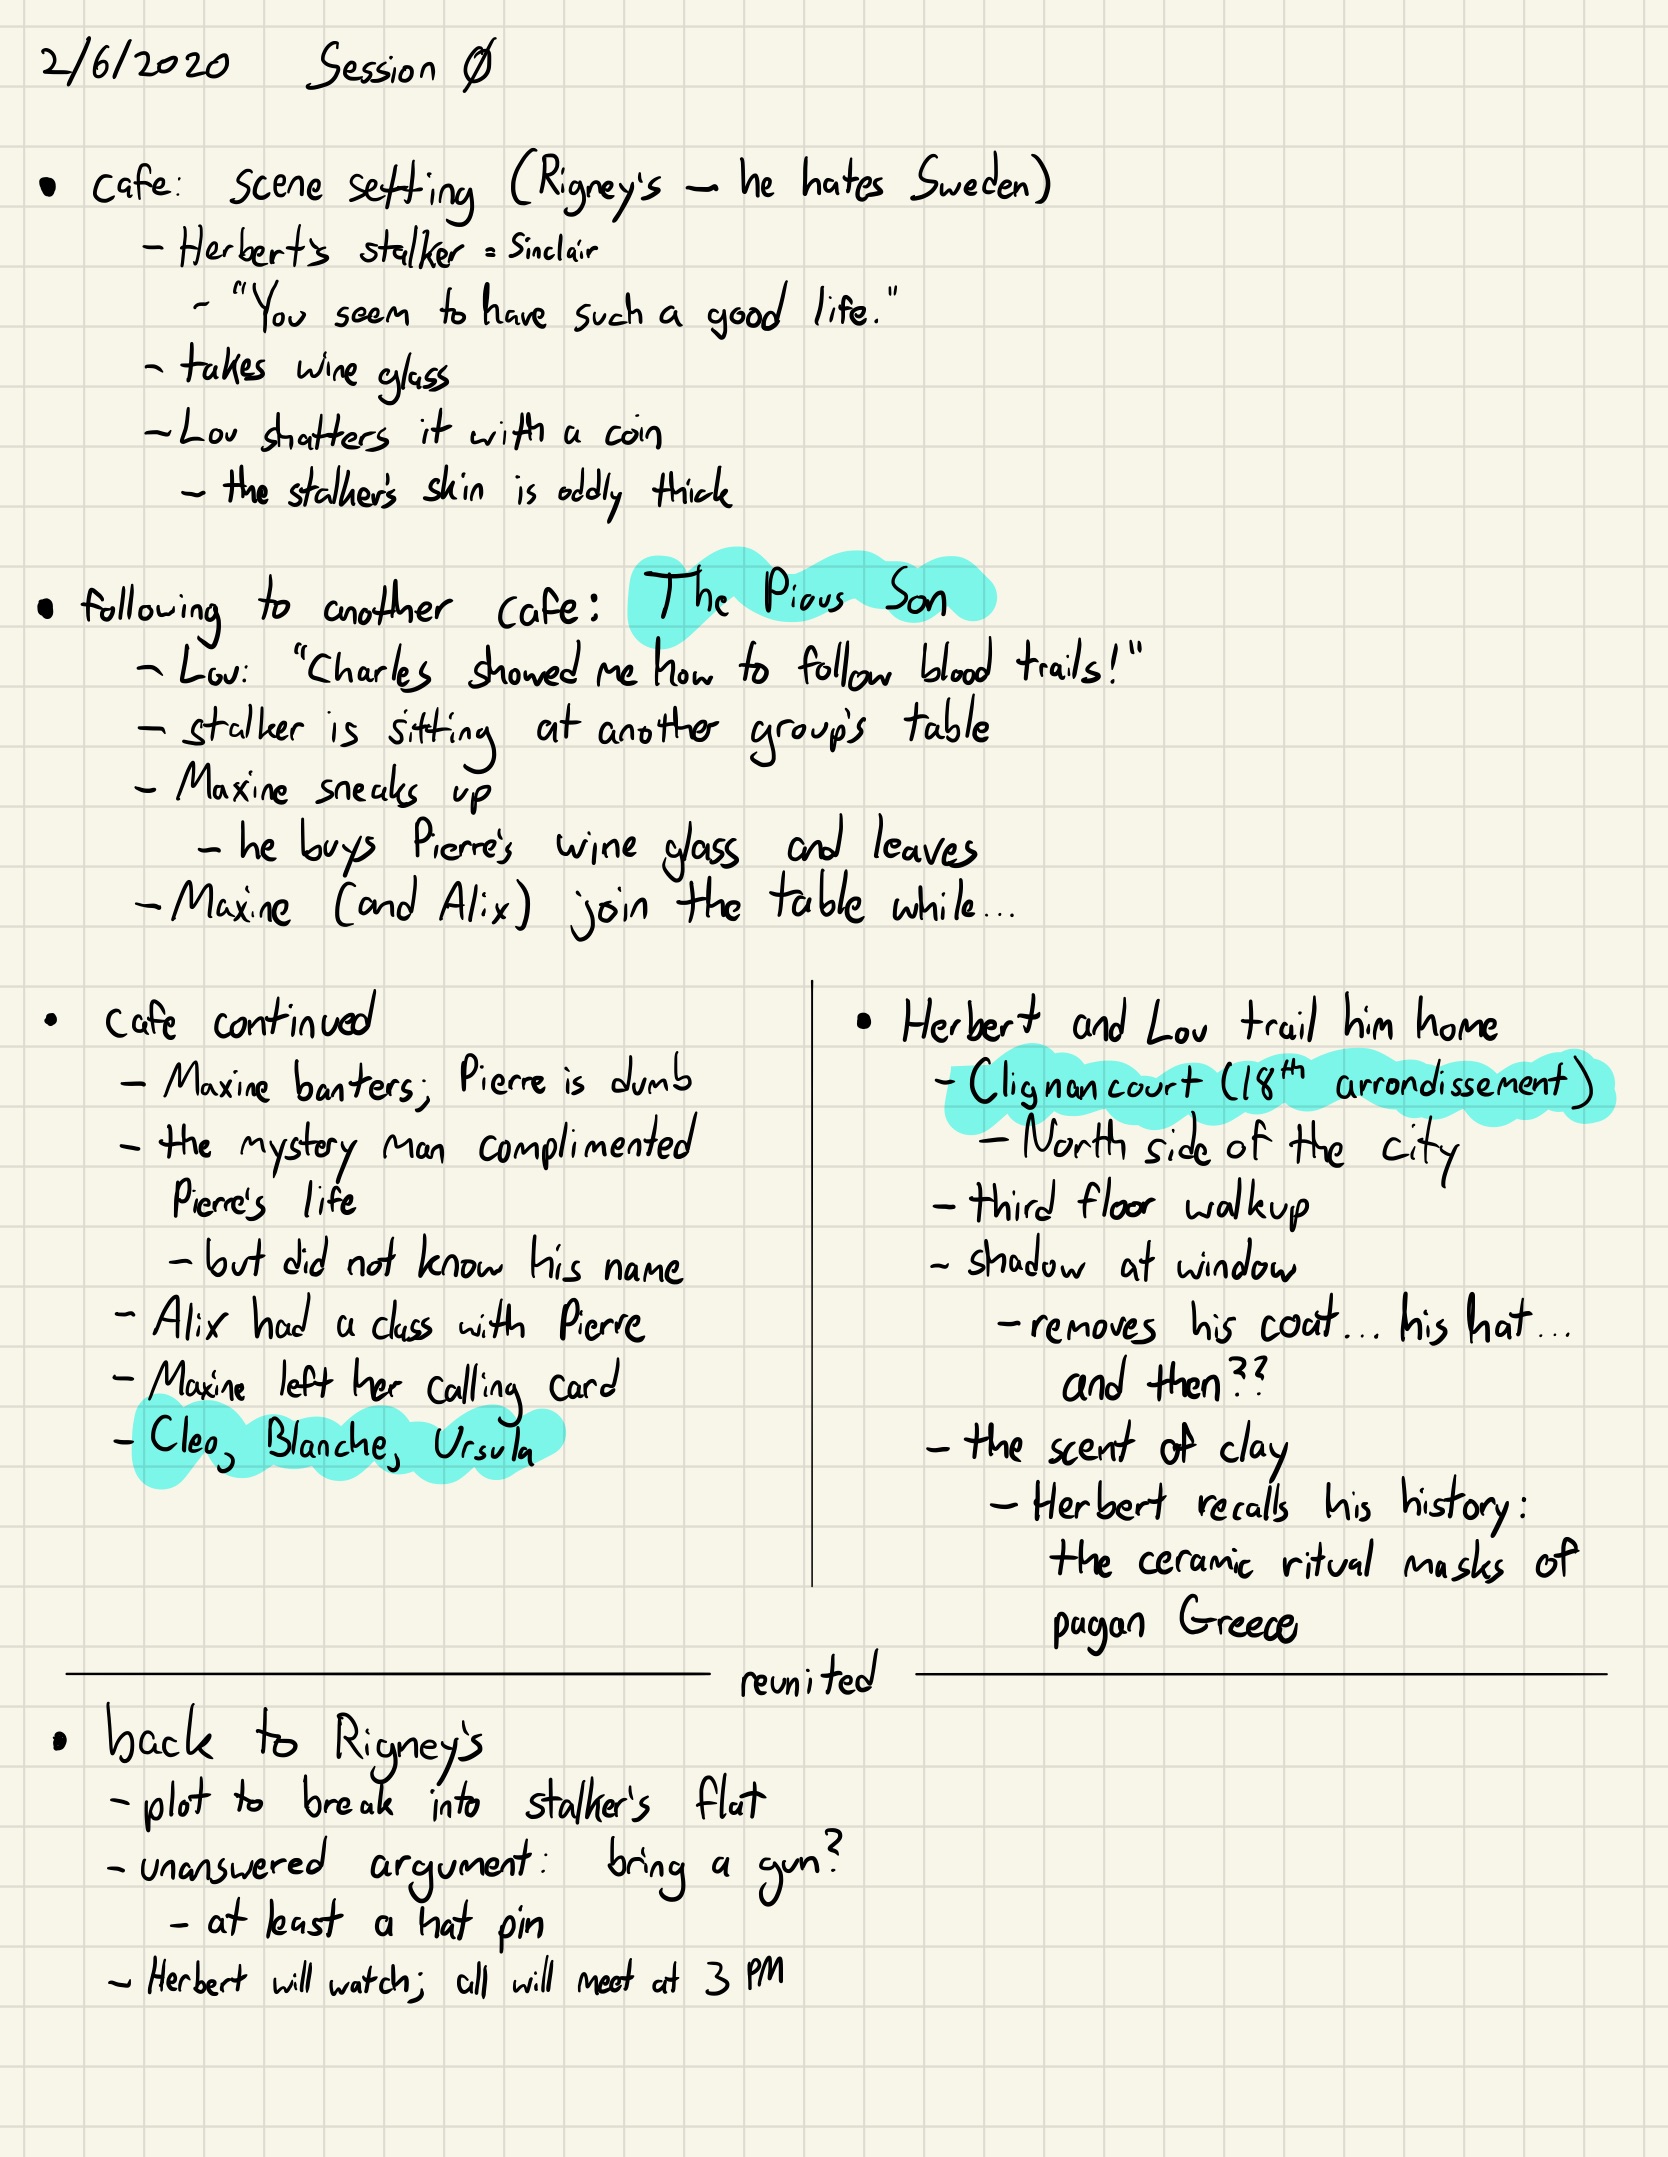 2/6/2020 Session Ø
• cafe: scene setting (Rigney's – he hates Sweden)
– Herbert's stalker = Sinclair
– "You seem to have such a good life."
– takes wine glass
– Lou shatters it with a coin
– the stalker's skin is oddly thick
• following to another cafe: The Pious Son
– Lou: "Charles showed me how to follow blood trails!"
– stalker is sitting at another group's table
– Maxine sneaks up
– he buys Pierre's wine glass and leaves
– Maxine (and Alix) join the table while...
• cafe continued
– Maxine banters; Pierre is dumb
– the mystery man complimented
Pierre's life
– but did not know his name
– Alix had a class with Pierre
– Maxine left her calling card
– Cleo, Blanche, Ursula
• Herbert and Lou trail him home
– Clignancourt (18th arrondissement)
– North side of the city
– third floor walkup
– shadow at window
– removes his coat... his hat...
and then??
– the scent of clay
– Herbert recalls his history:
the ceramic ritual masks of
pagan Greece
reunited
• back to Rigney's
– plot to break into stalker's flat
– unanswered argument: bring a gun?
– at least a hat pin
– Herbert will watch; all will meet at 3 PM